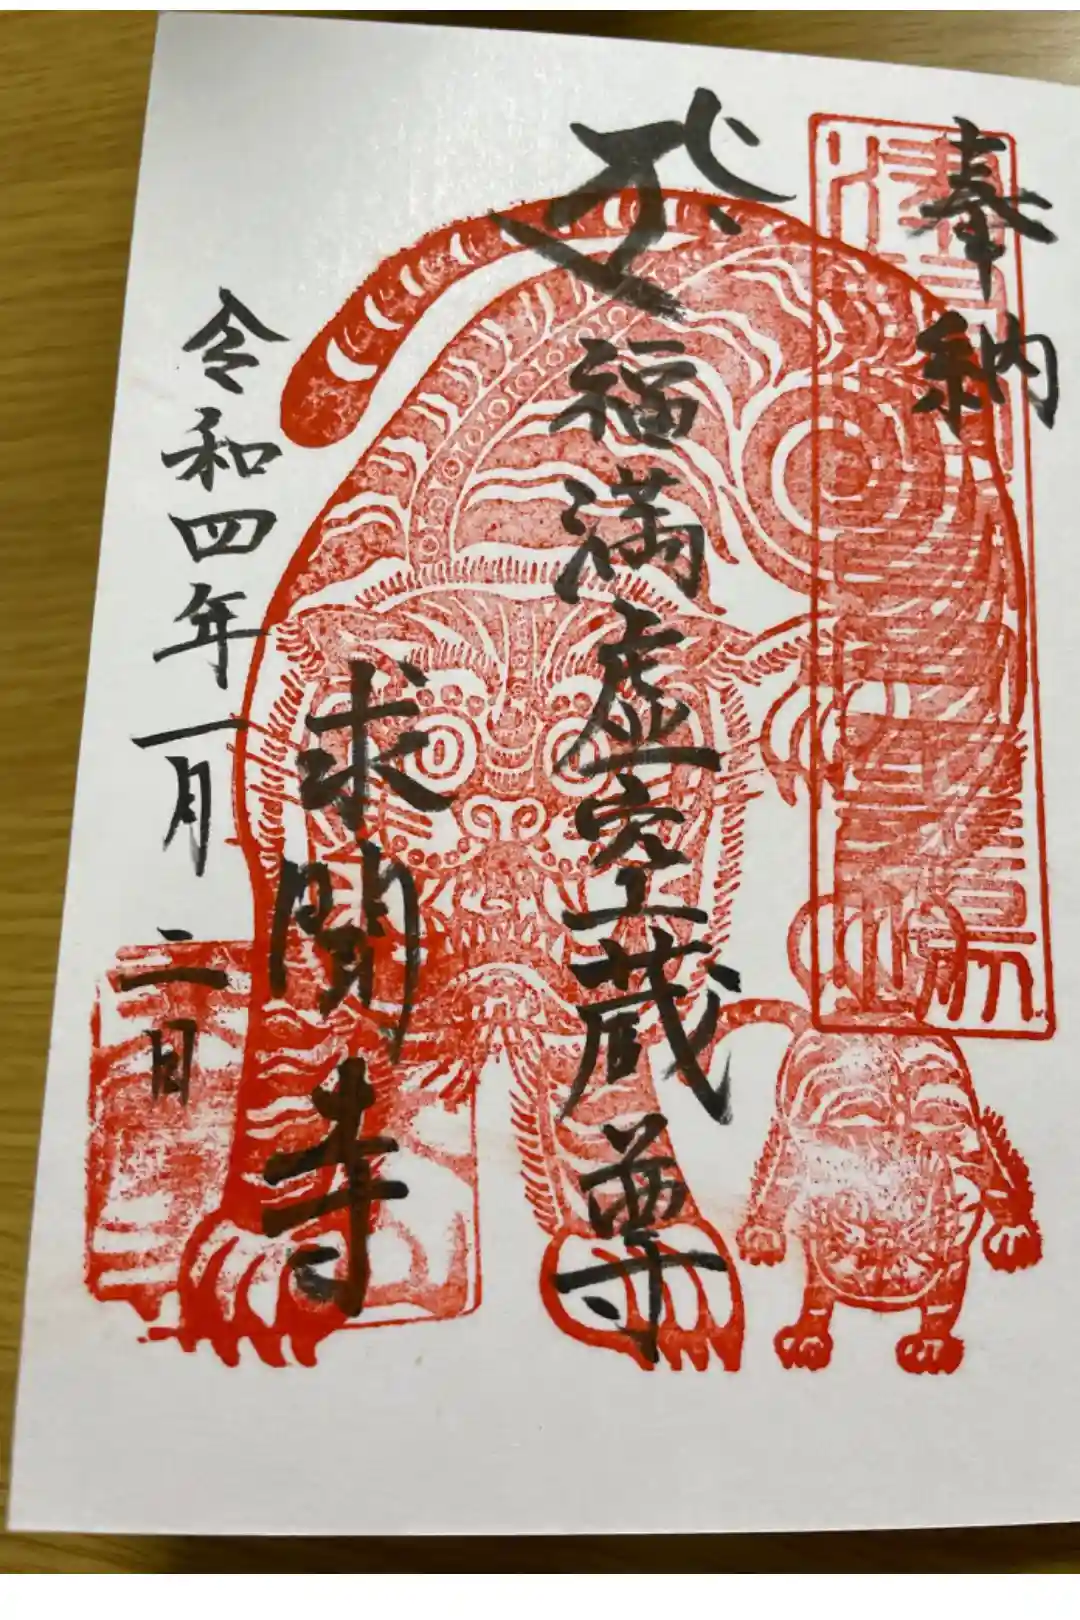 奉納
福満虚空蔵尊
求聞寺
令和四年一月二日